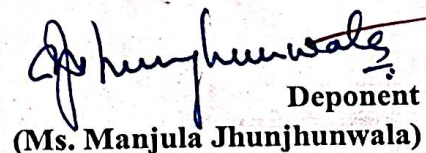 Jhunjhunwala
Deponent
(Ms. Manjula Jhunjhunwala)